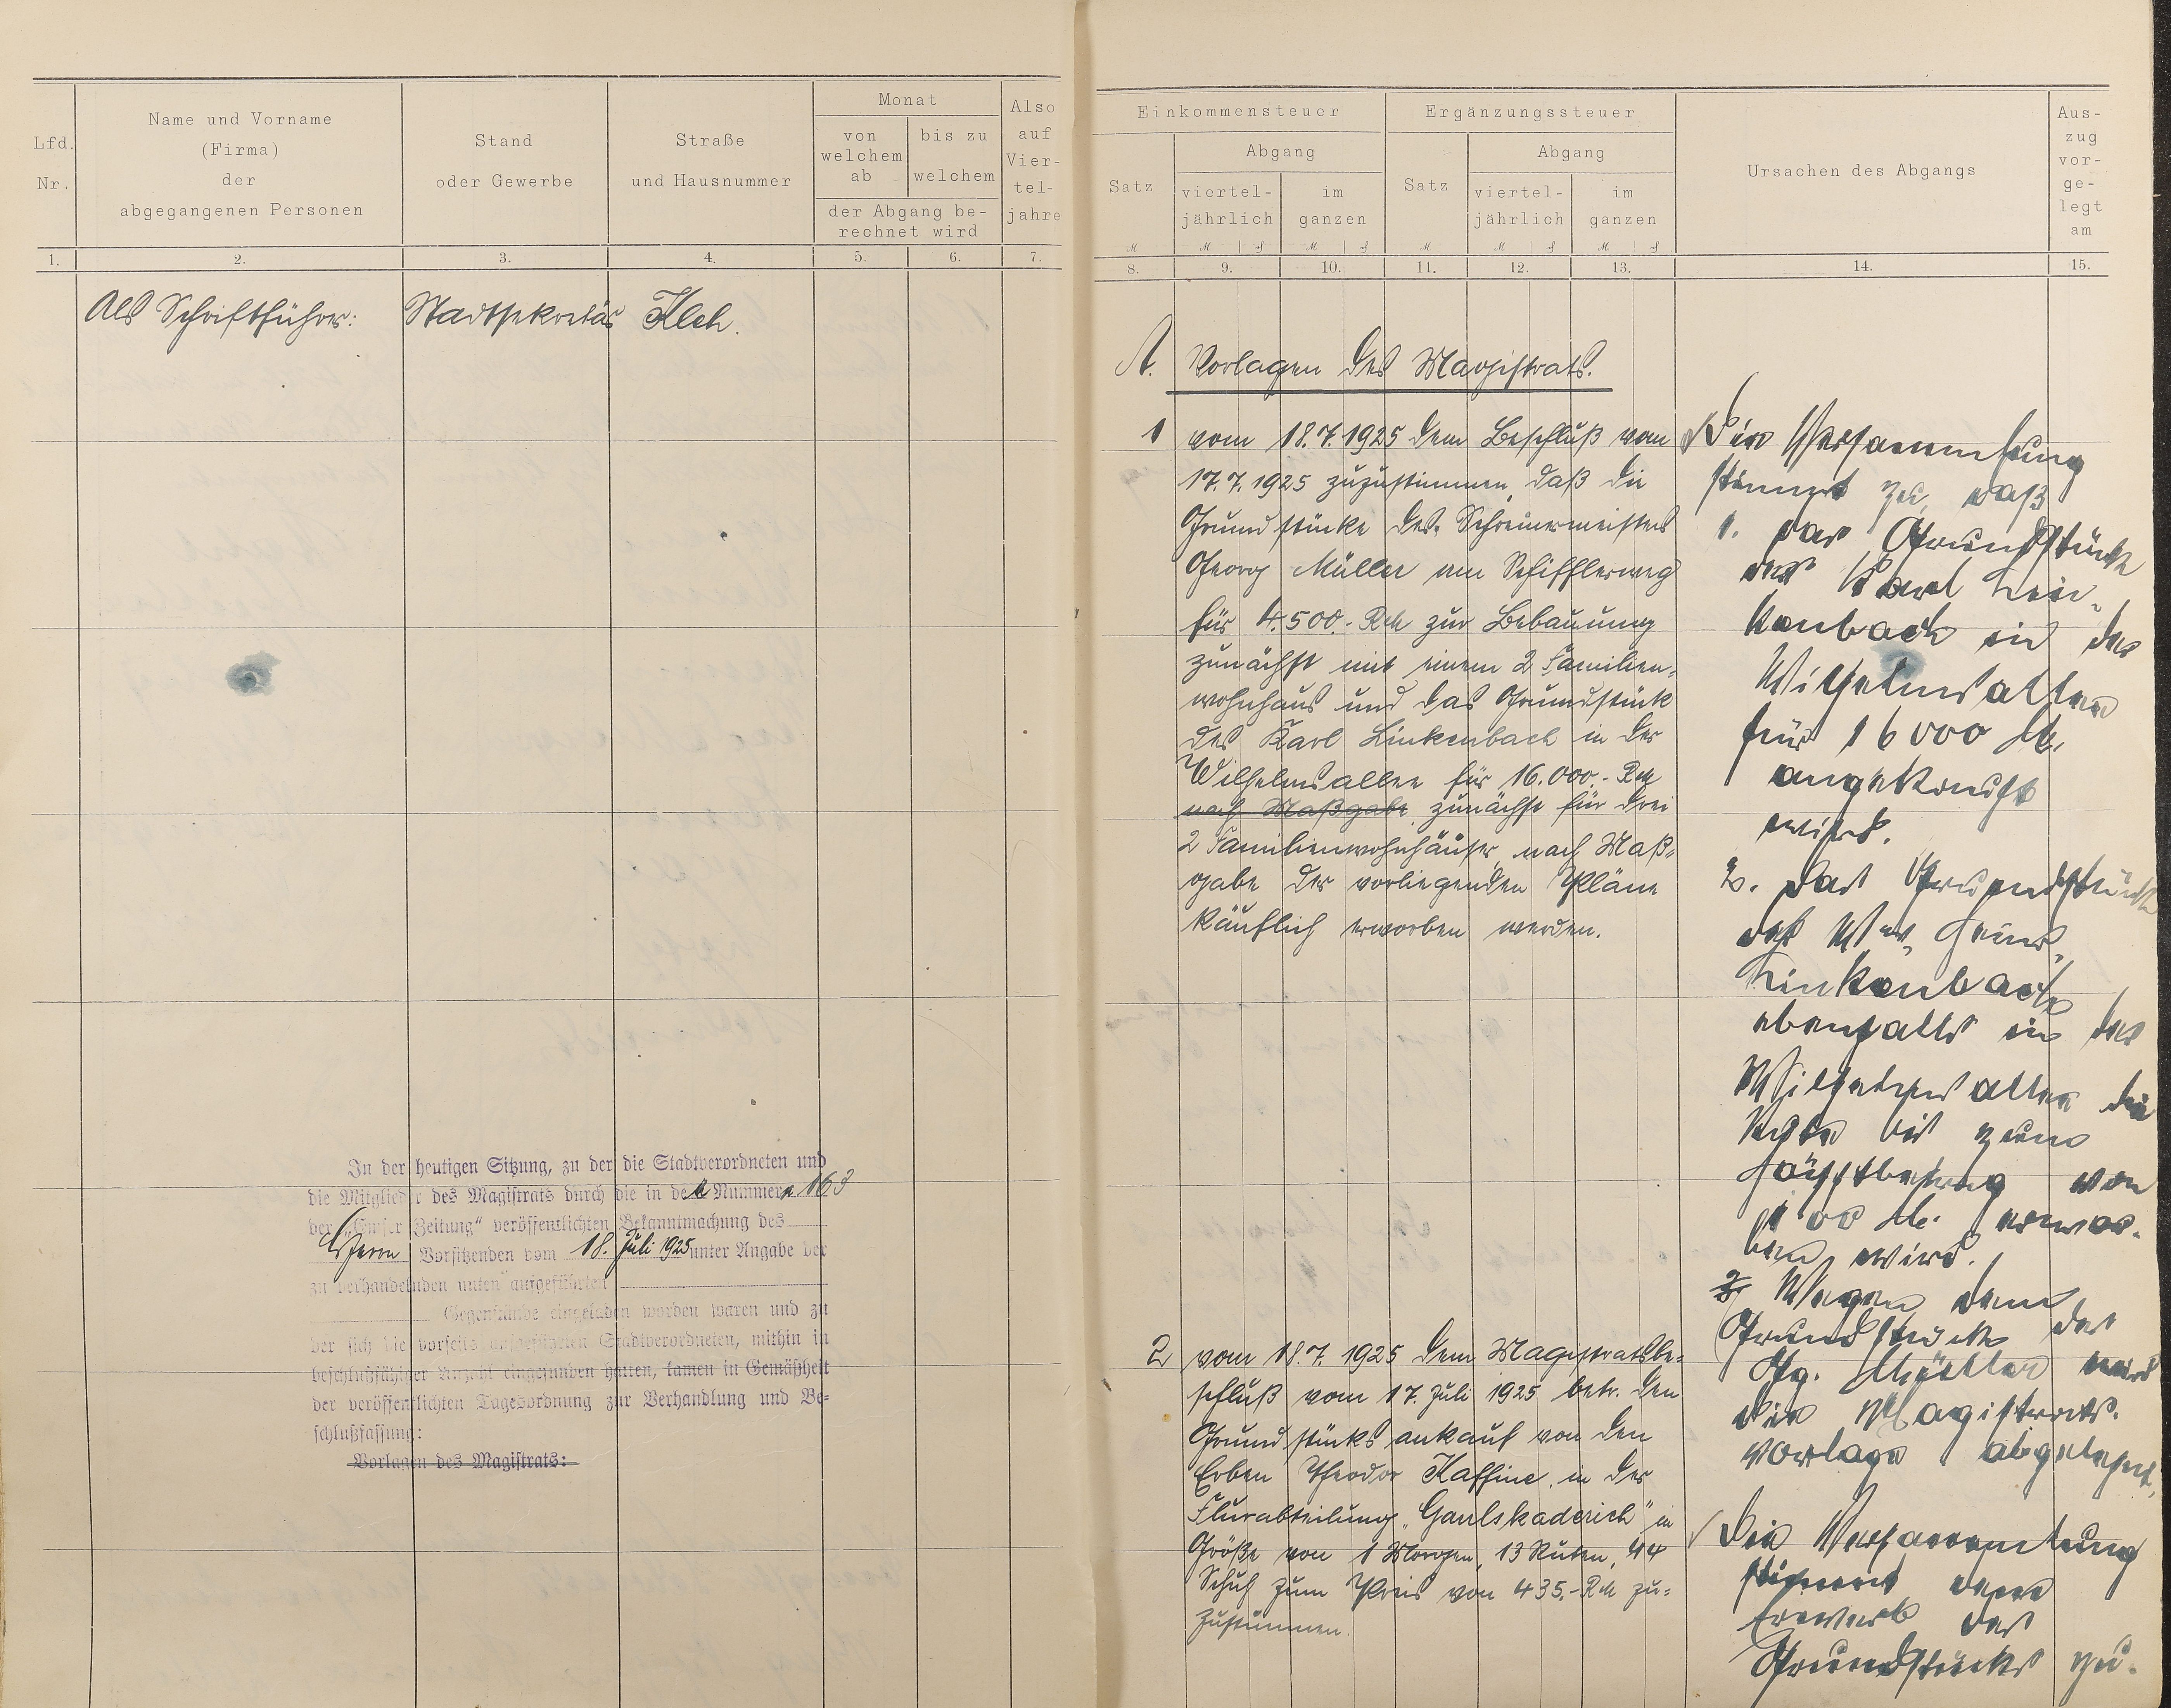 Lfd.
Nr.
Name und Vorname
(Firma)
der
abgegangenen Personen
Stand
oder Gewerbe
Straße
und Hausnummer
Monat
von
welchem
ab
bis zu
welchem
der Abgang be-
rechnet wird
Also
auf
Vier-
tel-
jahre
1. 2. 3. 4. 5. 6. 7.
Als Schriftführer: Stadtsekretär
In der heutigen Sitzung, zu der die Stadtverordneten und
die Mitglieder des Magistrats durch die in der Nummer 163
der „Emser Zeitung" veröffentlichten Bekanntmachung des
Herrn Vorsitzenden vom 18. Juli 1925 unter Angabe der
zu verhandelnden unten aufgeführten
Gegenstände eingeladen worden waren und zu
der sich die vorseits aufgeführten Stadtverordneten, mithin in
beschlußfähiger Anzahl eingefunden hatten, kamen in Gemäßheit
der veröffentlichten Tagesordnung zur Verhandlung und Be-
schlußfassung:
Vorlagen des Magistrats:
Einkommensteuer
Satz
Abgang
viertel-
jährlich
im
ganzen
Ergänzungssteuer
Satz
Abgang
viertel-
jährlich
im
ganzen
Ursachen des Abgangs
Aus-
zug
vor-
ge-
legt
am
8. 9. 10. 11. 12. 13. 14. 15.
A. Vorlagen des Magistrats.
1 vom 18.7.1925 dem Beschluß vom
17.7.1925 zuzustimmen, daß die
Grundstücke des Schreinermeisters
Georg Müller am
für 4.500.- RM zur Bebauung
zunächst mit einem 2 Familien-
wohnhaus und das Grundstück
des Karl Linkenbach in der
Wilhelmsallee für 16.000.- RM
nach Maßgabe zunächst für drei
2 Familienwohnhäuser, nach Maß-
gabe der vorliegenden Pläne
käuflich erworben werden.
2 vom 18.7.1925 dem Magistratsbe-
schluß vom 17. Juli 1925 betr. den
Grundstücksankauf von den
Erben Theodor Kaffine, in der
Flurabteilung „ " in
Größe von 1 Morgen, 13 Ruten, 44
Schuh zum Preis von 435.- RM zu-
zustimmen.
Die Versammlung
stimmt zu, daß
1. das Grundstück
des Karl Lin-
kenbach in der
Wilhelmsallee
für 16000 M.
angekauft
wird.
2. das Grundstück
des
Linkenbach
ebenfalls in der
Wilhelmsallee die
bis zum
Höchstbetrag von
M. erwor-
ben wird.
3. Wegen dem
Grundstück des
Gg. Müller wird
die Magistrats-
vorlage abgelehnt.
Die Versammlung
stimmt dem
Erwerb des
Grundstücks zu.